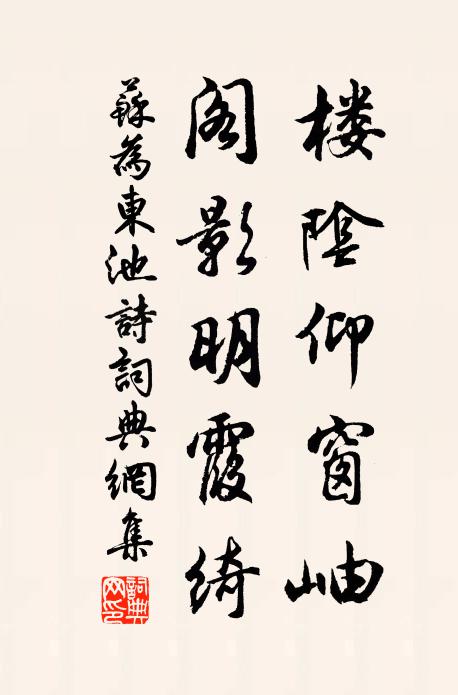 楼陰仰窗岫
阁影明霞綺
蘇為東池詩詞典網集
詞典網印